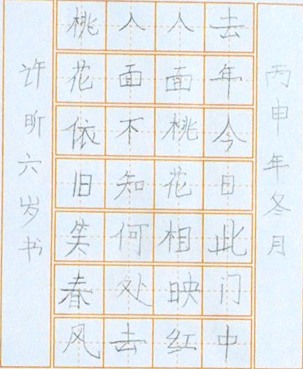 丙申年冬月
去年今日此门中
人面桃花相映红
人面不知何处去
桃花依旧笑春风
许昕六岁书